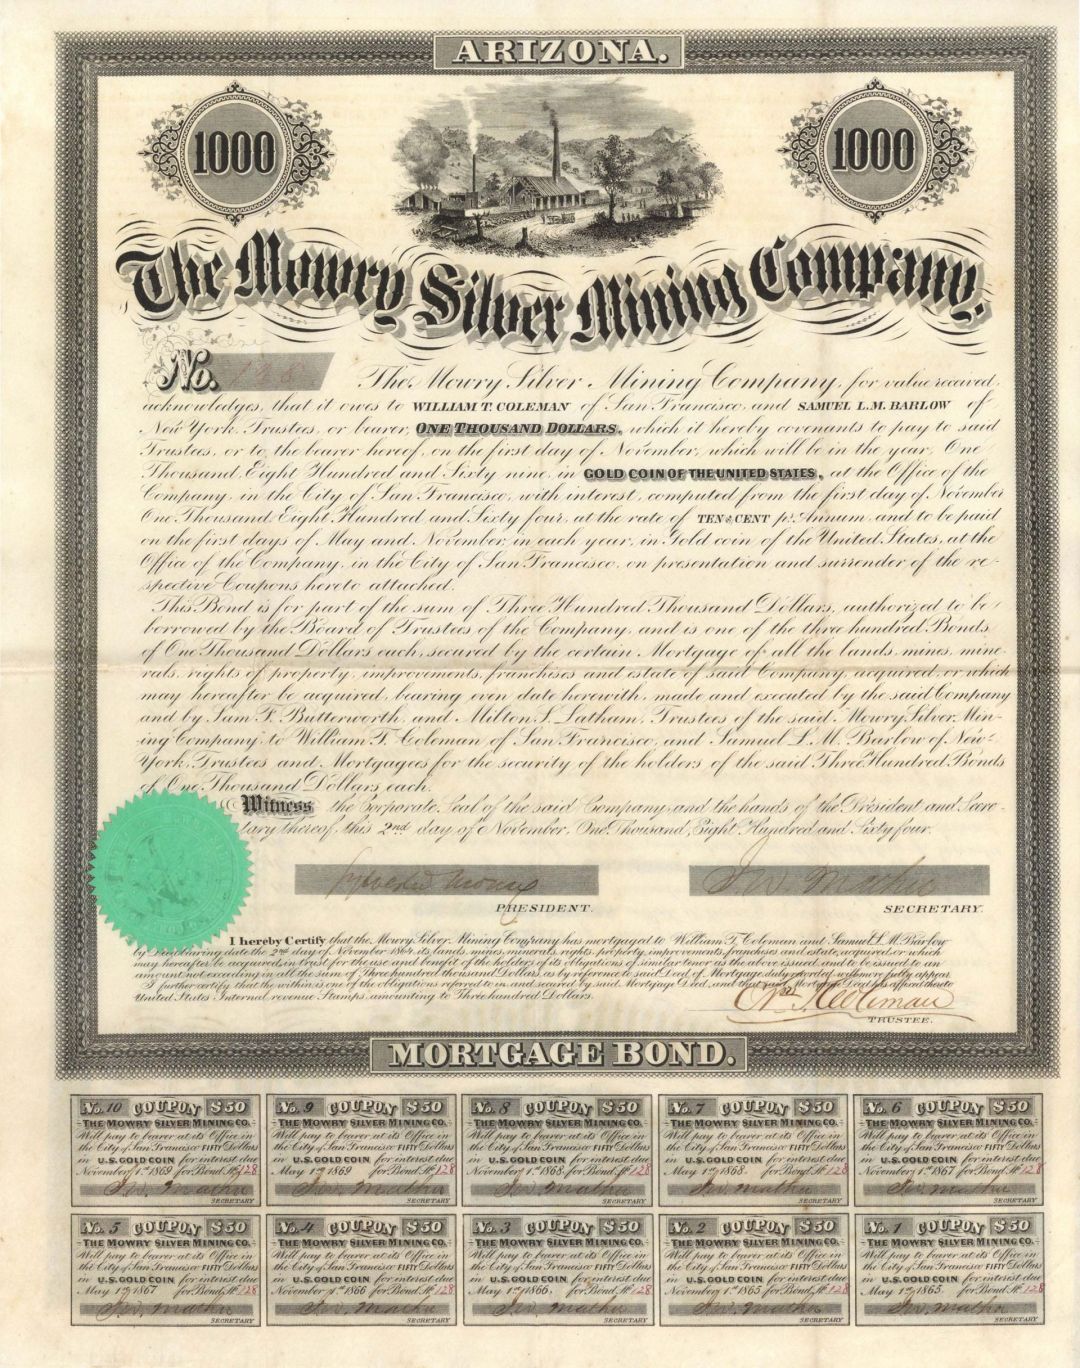 ARIZONA.
1000
1000
The Mowry Silver Mining Company.
No. 128
The Mowry Silver Mining Company, for value received,
acknowledges, that it owes to WILLIAM T. COLEMAN of San Francisco, and SAMUEL L.M. BARLOW of
New York, Trustees, or bearer, ONE THOUSAND DOLLARS, which it hereby covenants to pay to said
Trustees, or to the bearer hereof, on the first day of November, which will be in the year, One
Thousand, Eight Hundred and Sixty nine, in GOLD COIN OF THE UNITED STATES, at the Office of the
Company, in the City of San Francisco, with interest, computed from the first day of November
One Thousand, Eight Hundred and Sixty four, at the rate of TEN CENT pr. Annum, and to be paid
on the first days of May and November, in each year, in Gold coin of the United States, at the
Office of the Company, in the City of San Francisco, on presentation and surrender of the re-
spective Coupons hereto attached.
This Bond is for part of the sum of Three Hundred Thousand Dollars, authorized to be
borrowed by the Board of Trustees of the Company, and is one of the three hundred Bonds
of One Thousand Dollars each, secured by the certain Mortgage of all the lands, mines, mine-
rals, rights of property, improvements, franchises and estate of said Company, acquired, or which
may hereafter be acquired, bearing even date herewith, made and executed by the said Company
and by Sam F. Butterworth, and Milton S. Latham, Trustees of the said Mowry Silver Min-
ing Company, to William T. Coleman of San Francisco, and Samuel L.M. Barlow of New-
York, Trustees and Mortgagees for the security of the holders of the said Three Hundred Bonds
of One Thousand Dollars each.
Witness the Corporate Seal of the said Company, and the hands of the President and Secre-
tary thereof, this 2nd day of November, One Thousand, Eight Hundred and Sixty four.
Sylvester Mowry
J.W. Mather
PRESIDENT.
SECRETARY.
I hereby Certify that the Mowry Silver Mining Company has mortgaged to William T. Coleman and Samuel L.M. Barlow
by Deed bearing date the 2nd day of November 1864, its lands, mines, minerals, rights, property, improvements, franchises and estate, acquired, or which
may hereafter be acquired, in trust, for the use and benefit of the holders of its obligations of similar tenor as the above issued, and to be issued to an
amount not exceeding in all the sum of Three hundred thousand Dollars, as by reference to said Deed of Mortgage, duly recorded, will more fully appear.
I further certify that the within is one of the obligations referred to in and secured by said Mortgage Deed, and that said Mortgage Deed has affixed thereto
United States Internal revenue Stamps, amounting to Three hundred Dollars.
Wm. T. Coleman
TRUSTEE.
MORTGAGE BOND.
No. 10 COUPON $50
THE MOWRY SILVER MINING CO.
Will pay to bearer at its Office in
the City of San Francisco FIFTY Dollars
in U.S. GOLD COIN for interest due
November 1st 1869 for Bond No. 128
J.W. Mather
SECRETARY
No. 9 COUPON $50
THE MOWRY SILVER MINING CO.
Will pay to bearer at its Office in
the City of San Francisco FIFTY Dollars
in U.S. GOLD COIN for interest due
May 1st 1869 for Bond No. 128
J.W. Mather
SECRETARY
No. 8 COUPON $50
THE MOWRY SILVER MINING CO.
Will pay to bearer at its Office in
the City of San Francisco FIFTY Dollars
in U.S. GOLD COIN for interest due
November 1st 1868. for Bond No. 128
J.W. Mather
SECRETARY
No. 7 COUPON $50
THE MOWRY SILVER MINING CO.
Will pay to bearer at its Office in
the City of San Francisco FIFTY Dollars
in U.S. GOLD COIN for interest due
May 1st 1868. for Bond No. 128
J.W. Mather
SECRETARY
No. 6 COUPON $50
THE MOWRY SILVER MINING CO.
Will pay to bearer at its Office in
the City of San Francisco FIFTY Dollars
in U.S. GOLD COIN for interest due
November 1st 1867 for Bond No. 128
J.W. Mather
SECRETARY
No. 5 COUPON $50
THE MOWRY SILVER MINING CO.
Will pay to bearer at its Office in
the City of San Francisco FIFTY Dollars
in U.S. GOLD COIN for interest due
May 1st 1867 for Bond No. 128
J.W. Mather
SECRETARY
No. 4 COUPON $50
THE MOWRY SILVER MINING CO.
Will pay to bearer at its Office in
the City of San Francisco FIFTY Dollars
in U.S. GOLD COIN for interest due
November 1st 1866 for Bond No. 128
J.W. Mather
SECRETARY
No. 3 COUPON $50
THE MOWRY SILVER MINING CO.
Will pay to bearer at its Office in
the City of San Francisco FIFTY Dollars
in U.S. GOLD COIN for interest due
May 1st 1866. for Bond No. 128
J.W. Mather
SECRETARY
No. 2 COUPON $50
THE MOWRY SILVER MINING CO.
Will pay to bearer at its Office in
the City of San Francisco FIFTY Dollars
in U.S. GOLD COIN for interest due
November 1st 1865 for Bond No. 128
J.W. Mather
SECRETARY
No. 1 COUPON $50
THE MOWRY SILVER MINING CO.
Will pay to bearer at its Office in
the City of San Francisco FIFTY Dollars
in U.S. GOLD COIN for interest due
May 1st 1865. for Bond No. 128
J.W. Mather
SECRETARY